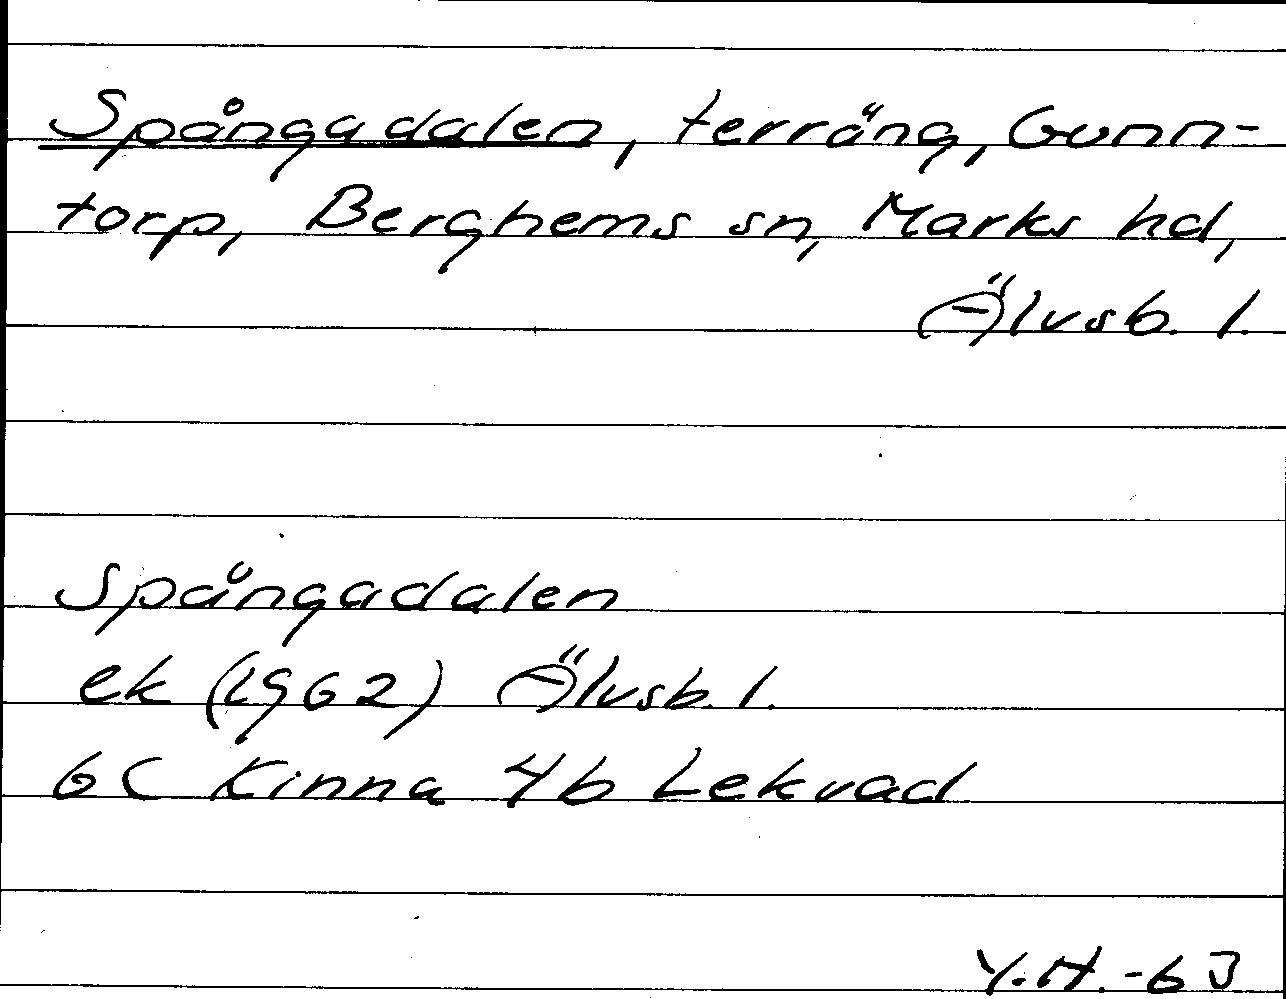 Spångadalen, terräng, Gunn-
torp, Berghems sn, Marks hd,
Älvsb. l.
Spångadalen
ek (1962) Älvsb. l.
6C Kinna 4b Lekvad
Y.H. -63